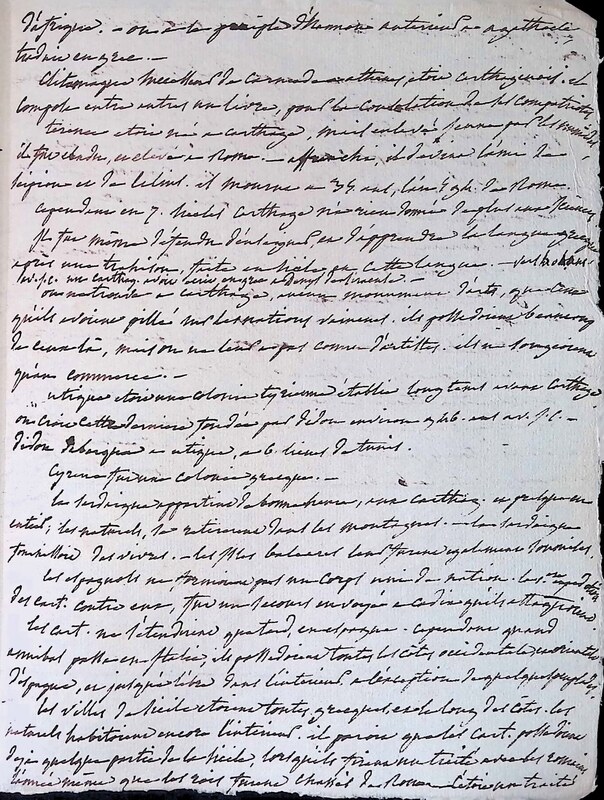 d'afrique. — on a le periple d'hannon anterieur a agathocle
traduit en grec. —
Clitomaque successeur de Carneade a athenes, etoit carthaginois. il
composa entre autres un livre, pour la Consolation de ses compatriotes
terence etoit né a carthage, mais enlevé jeune par les numides
il fut vendu, et elevé a Rome. — affranchi, il devint l'ami de
scipion et de lelius. il mourut a 35 ans, l'an de Rome.
Cependant en 7. siecles carthage n'a rien donné de plus aux sciences
il fut même défendu d'enseigner, et d'apprendre la langue grecque
après une trahison, faite en Sicile en cette langue. —
av. j.c. un carthag. avoit ecrit en grec a denys
on ne trouva a carthage, aucun monument d'arts, que ceux
qu'ils avoient pillé sur les nations vaincues. ils possedoient beaucoup
de ceux là, mais on ne leur a pas connu d'artistes. ils ne songeoient
qu'au commerce. —
utique etoit une colonie tyrienne établie longtems avant Carthage
on croit cette derniere fondée par didon environ ans av. j.C. —
didon debarqua a utique, a 6. lieues de tunis.
Cyrene fut une colonie grecque. —
la Sardaigne appartint de bonne heure, aux Carthag. en presque en
entier, les naturels, se retirerent dans les montagnes. — la Sardaigne
fournissoit des vivres. — les isles baleares leur furent egalement soumises.
les espagnols ne formoient pas un corps uni de nation. les expedition
des cart. contre eux, fut un secours envoyé a cadix qu'ils attaquoient
les cart. ne s'etendirent que tard, en espagne. cependant quand
annibal passa en Italie, ils possedoient toutes les côtes occidentales, orientales
d'espagne, et jusqu'a l'ebre dans l'interieur, a l'exception de quelques peuplades.
les villes de Sicile etoient toutes, grecques, et le long des côtes. les
naturels habitoient encore l'interieur. il paroit que les cart. possedoient
deja quelque partie de la Sicile, lorsqu'ils firent un traité avec les romains
l'année même que les rois furent chassés de Rome. c'etoit un traité